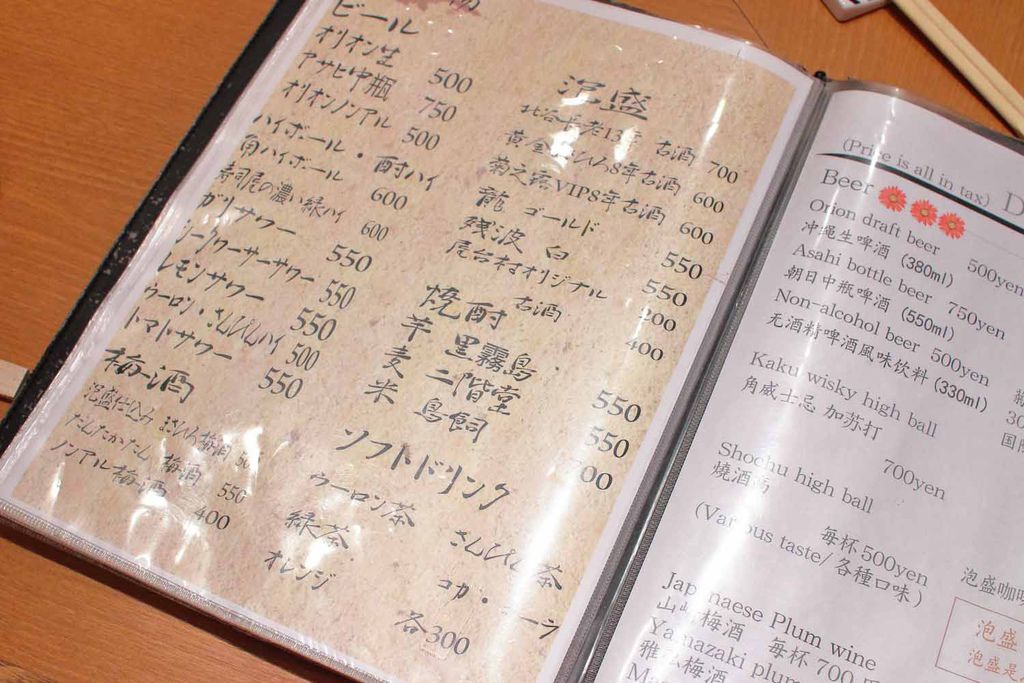 ビール
オリオン生 500
アサヒ中瓶 750
オリオンノンアル 500
ハイボール・酎ハイ
角ハイボール 600
寿司屋の濃い緑ハイ 600
ガリサワー 550
シークワーサーサワー 550
レモンサワー 550
ウーロン・さんぴんハイ 500
トマトサワー 550
梅酒
泡盛仕込み まさひろ梅酒
たんたかたん 梅酒 550
ノンアル梅酒 400
泡盛
北谷長老13年 古酒 700
黄金 8年古酒 600
菊之露VIP8年古酒 600
龍 ゴールド 550
残波 白 550
尾台村オリジナル 200
古酒 400
焼酎
芋 黒霧島 550
麦 二階堂 550
米 鳥飼 700
ソフトドリンク
ウーロン茶 さんぴん茶
緑茶 コカ・
オレンジ
各300
(Price is all in tax) D
Beer
Orion draft beer 500yen
冲绳生啤酒 (380ml)
Asahi bottle beer 750yen
朝日中瓶啤酒 (550ml)
Non-alcohol beer 500yen
无酒精啤酒風味饮料 (330ml)
Kaku wisky high ball
角威士忌 加苏打
700yen
Shochu high ball
燒酒
毎杯500yen
(Various taste/各種口味)
Japanaese Plum wine
山崎梅酒 毎杯 700
Yamazaki plum
雅弘梅酒
泡盛咖啡
泡盛
泡盛是